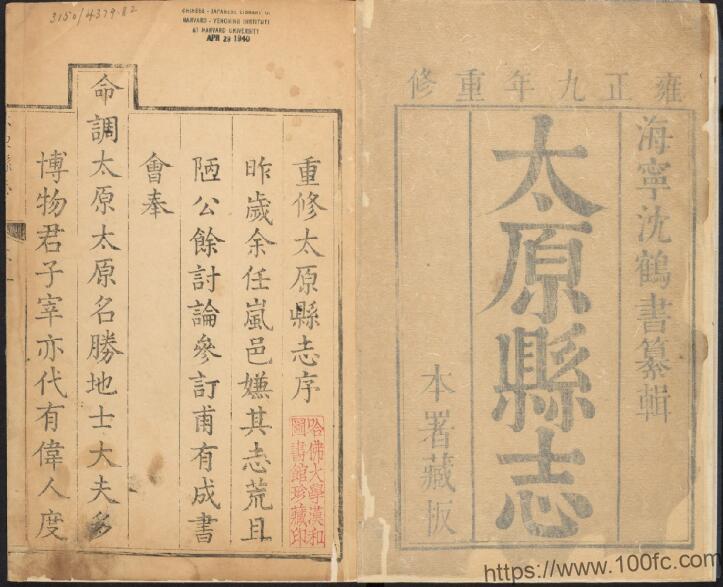 雍正九年重修
海寧沈鶴書纂輯
太原縣志
本署藏板
3150/4379.82
CHINESE - JAPANESE LIBRARY OF
HARVARD - YENCHING INSTITUTE
AT HARVARD UNIVERSITY
APR 29 1940
重修太原縣志序
昨歲余任嵐邑嫌其志荒且
陋公餘討論參訂甫有成書
會奉
命調太原太原名勝地士大夫多
博物君子宰亦代有偉人度
哈佛大學漢和
圖書館珍藏印
https://www.100fc.com